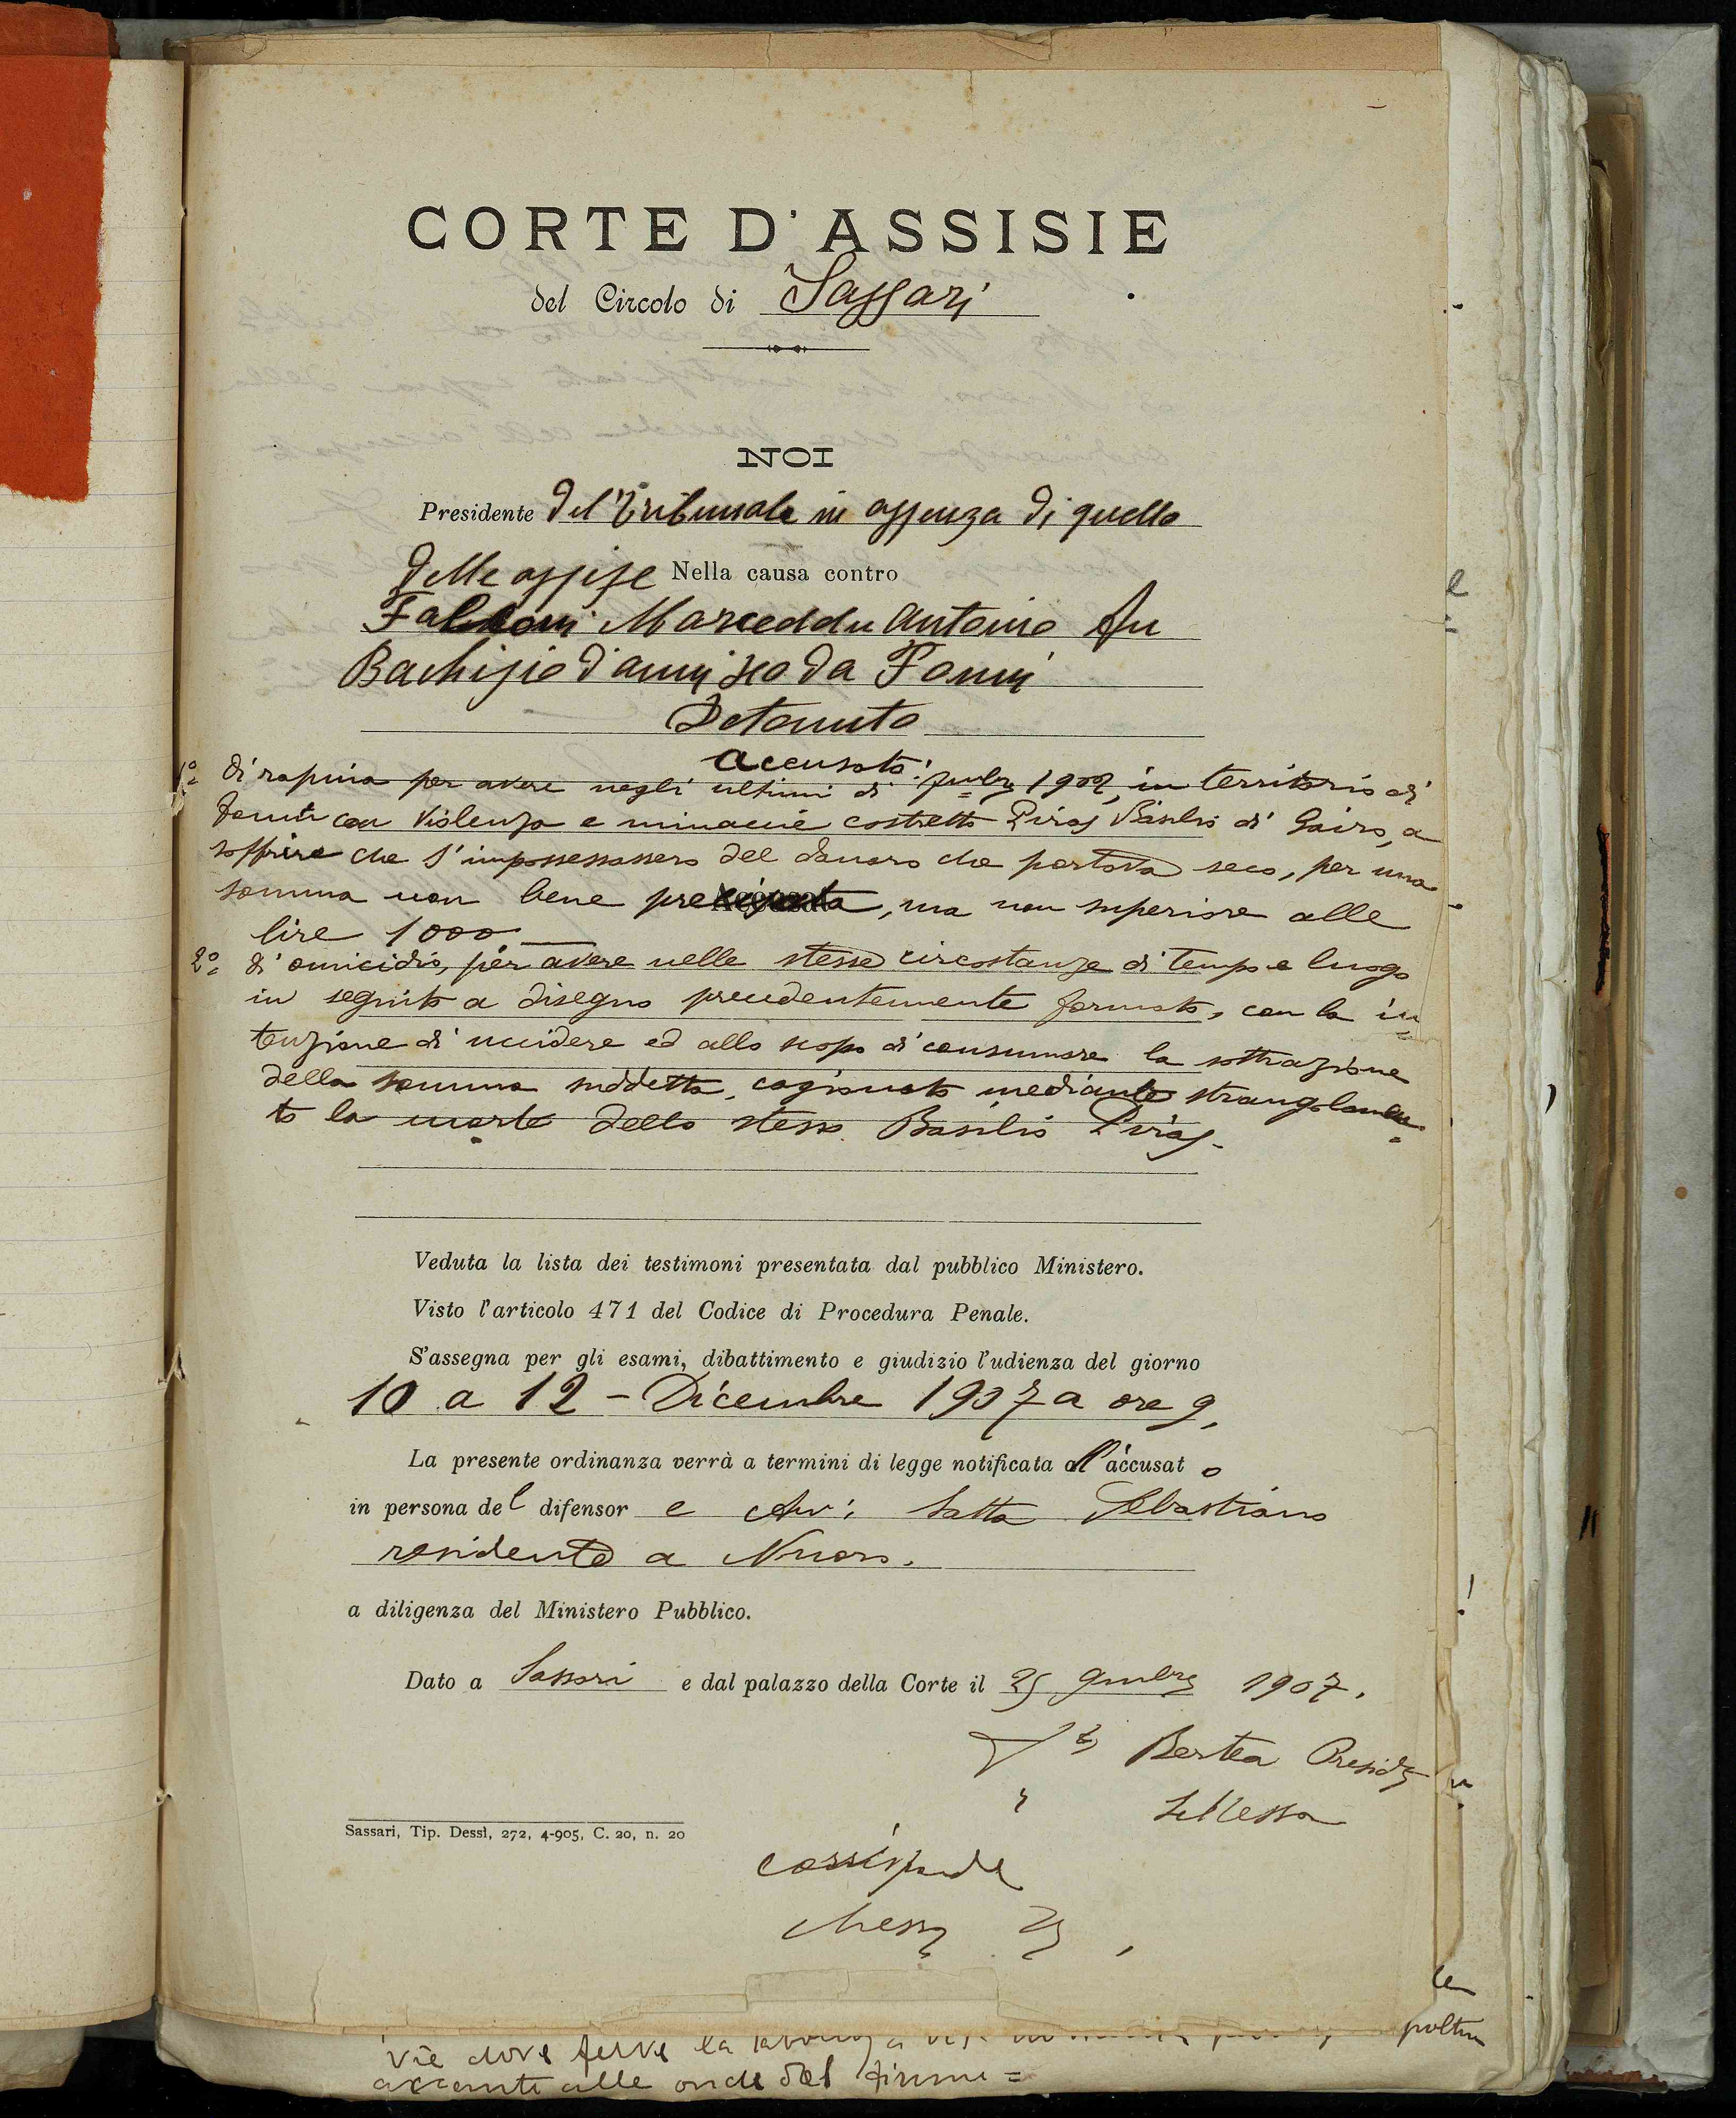 CORTE D'ASSISIE
del Circolo di Sassari
NOI
Presidente del Tribunale in assenza di quello
delle assise Nella causa contro
Falconi Marceddu Antonio fu
Bachisio d'anni da Fonni
Detenuto
accusato:
1º di rapina per avere negli ultimi di 190 , in territorio di
Fonni con violenza e minaccie costretto Piras Basilio di Gairo, a
soffrire che s'impossessassero del danaro che portava seco, per una
somma non bene precisata, ma non superiore alle
lire 1000
2º di omicidio, per avere nelle stesse circostanze di tempo e luogo
in seguito a disegno precedentemente formato, con la in
tenzione di uccidere ed allo scopo di consumare la sottrazione
della somma suddetta, cagionato mediante strangolamen
to la morte dello stesso Basilio Piras.
Veduta la lista dei testimoni presentata dal pubblico Ministero.
Visto l'articolo 471 del Codice di Procedura Penale.
S'assegna per gli esami, dibattimento e giudizio l'udienza del giorno
10 a 12 - Dicembre 1907 a ore 9.
La presente ordinanza verrà a termini di legge notificata all'accusato
in persona del difensor e Avv: Satta Sebastiano
residente a Nuoro.
a diligenza del Ministero Pubblico.
Dato a Sassari e dal palazzo della Corte il 25 9mbre 1907.
Bertea Preside
Sassari, Tip. Dessì, 272, 4-905, C. 20, n. 20
vie dove ferve la
accanto alle onde del fiume =